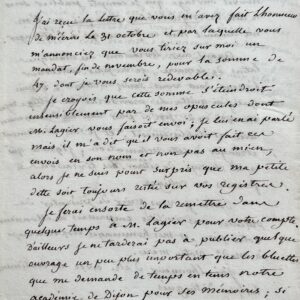 J'ai reçu la lettre que vous m'avez fait l'honneur
de m'écrire le 31 octobre et par laquelle vous
m'annonciez que vous tiriez sur moi un
mandat, fin de novembre, pour la somme de
47, dont je vous serois redevable.
Je croyois que cette somme s'éteindroit
insensiblement par de mes opuscules dont
M. Lagier vous faisoit envoi; je lui en ai parlé
mais il m'a dit qu'il vous avoit fait ces
envois en son nom et non pas au mien,
alors je ne suis pour surpris que ma petite
dette soit toujours restée sur vos registres.
Je ferai ensorte de la remettre dans
quelque temps à M. Lagier pour votre compte.
D'ailleurs je ne tarderai pas à publier quelque
ouvrage un peu plus important que les bluettes
que me demande de temps en tems notre
academie de Dijon pour ses mémoires; si